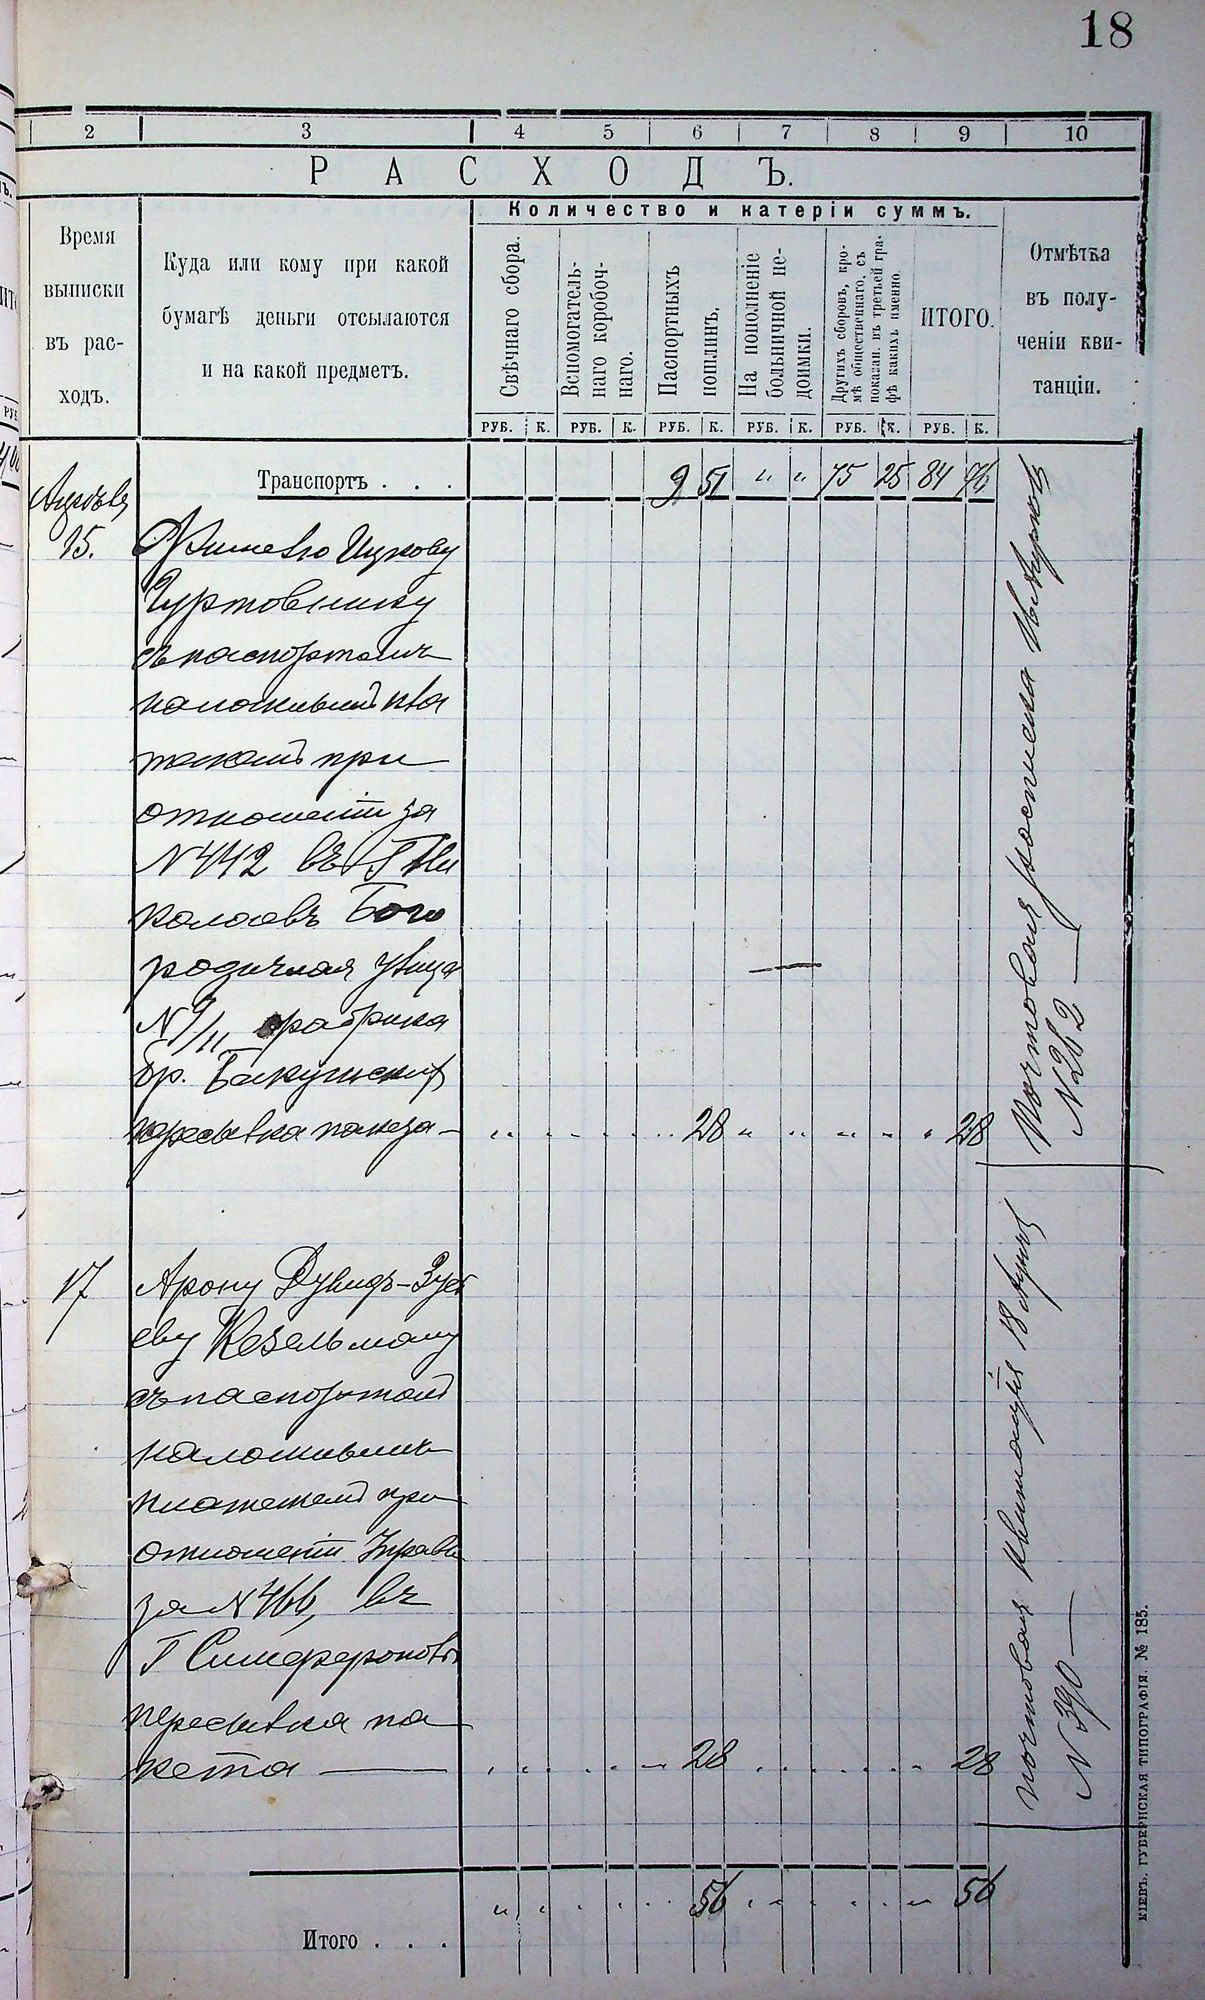 18
2 3 4 5 6 7 8 9 10
РАСХОДЪ.
Количество и катеріи суммъ.
Время
выписки
въ рас-
ходъ.
Куда или кому при какой
бумагѣ деньги отсылаются
и на какой предметъ.
Свѣчнаго сбора.
Вспомогатель-
наго коробоч-
наго.
Паспортныхъ
пошлинъ.
На пополненіе
больничной не-
доимки.
Другихъ сборовъ, кро-
мѣ общественнаго, съ
показан. въ третьей гра-
фѣ какихъ именно.
ИТОГО.
Отмѣтка
въ полу-
ченіи кви-
танціи.
РУБ. К. РУБ. К. РУБ. К. РУБ. К. РУБ. К. РУБ. К.
Транспортъ . . . 9 51 " " 75 25 84 76
15. Ицкову
Гуртовнику
съ паспортомъ
при
отношеніи за
N 442 въ Г Ни
колаевъ Бого
родичная улица
N 9/11 фабрика
бр.
пересылка
28 28
Почтовая росписка
N 262
17 Арону Дувидъ-Зусъ
еву Кезельману
съ паспортомъ
наложнымъ
платежемъ при
отношеніи Управы
за N 466, въ
Г Симферополь
пересылка па
кета — 28 28
почтовая квитанція 18
N 390 —
Итого . . . 56 56
КІЕВЪ. ГУБЕРНСКАЯ ТИПОГРАФІЯ. № 185.